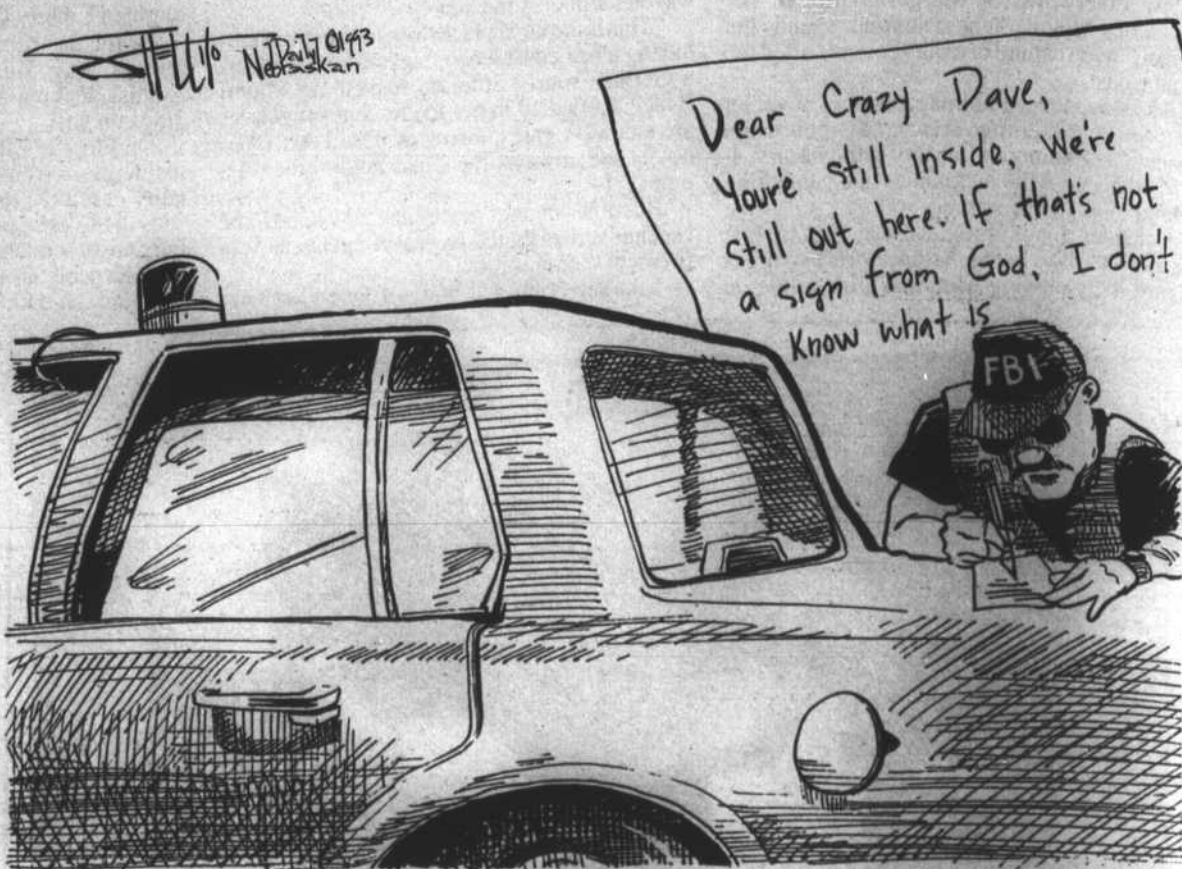 Daily ©1993
Nebraskan
Dear Crazy Dave,
Your'e still inside, We're
still out here. If that's not
a sign from God, I don't
know what is
FBI